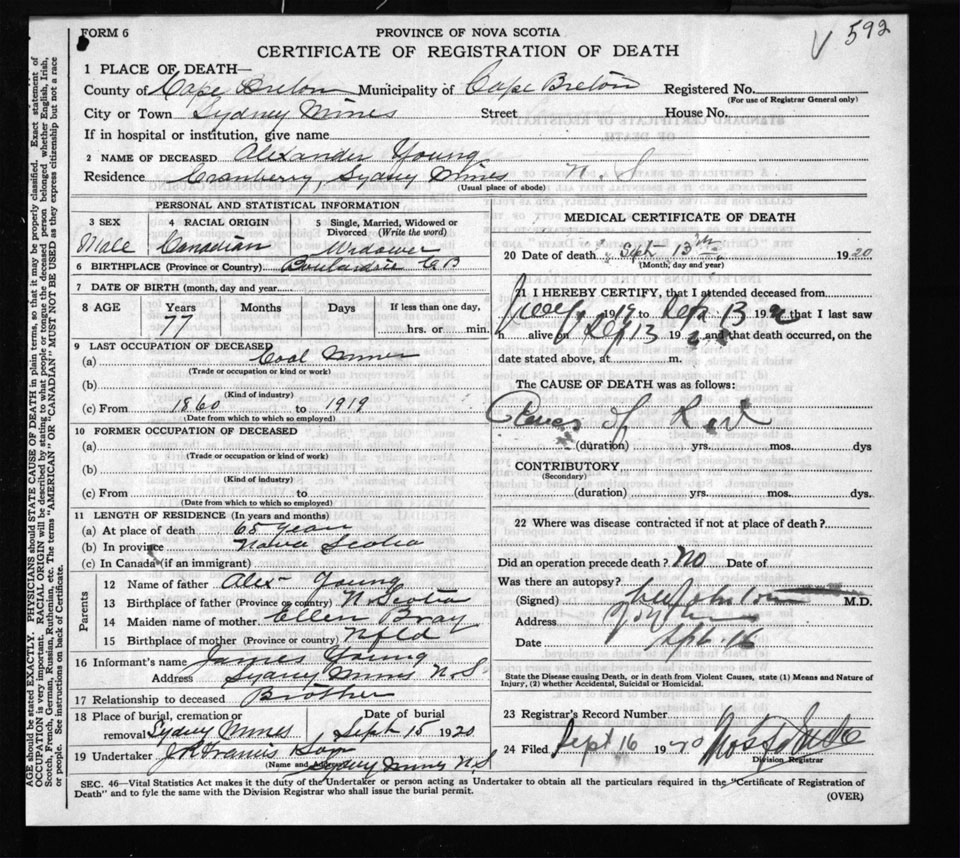 FORM 6
PROVINCE OF NOVA SCOTIA
CERTIFICATE OF REGISTRATION OF DEATH
V 592
1 PLACE OF DEATH—
County of Cape Breton Municipality of Cape Breton Registered No.
(For use of Registrar General only)
City or Town Sydney Mines Street House No.
If in hospital or institution, give name
2 NAME OF DECEASED Alexander Young
Residence Cranberry, Sydney Mines N. S
(Usual place of abode)
PERSONAL AND STATISTICAL INFORMATION
3 SEX 4 RACIAL ORIGIN 5 Single, Married, Widowed or Divorced (Write the word)
Male Canadian Widower
6 BIRTHPLACE (Province or Country) Boularderie C B
7 DATE OF BIRTH (month, day and year)
8 AGE Years Months Days If less than one day,
77 hrs. or min.
9 LAST OCCUPATION OF DECEASED
(a) Coal Miner
(Trade or occupation or kind of work)
(b)
(Kind of industry)
(c) From 1860 to 1919
(Date from which to which so employed)
10 FORMER OCCUPATION OF DECEASED
(a)
(Trade or occupation or kind of work)
(b)
(Kind of industry)
(c) From to
(Date from which to which so employed)
11 LENGTH OF RESIDENCE (In years and months)
(a) At place of death 65 years
(b) In province Nova Scotia
(c) In Canada (if an immigrant)
Parents
12 Name of father Alex Young
13 Birthplace of father (Province or country) N. Scotia
14 Maiden name of mother Ellen Bray
15 Birthplace of mother (Province or country) Nfld
16 Informant's name James Young
Address Sydney Mines N. S.
17 Relationship to deceased Brother
18 Place of burial, cremation or removal Sydney Mines Date of burial Sept 15 1920
19 Undertaker
(Name and address) Sydney Mines N.S
MEDICAL CERTIFICATE OF DEATH
20 Date of death Sept 13th 1920
(Month, day and year)
21 I HEREBY CERTIFY, that I attended deceased from
to Sep 13 192 that I last saw
h alive on Sep 13 192 and that death occurred, on the
date stated above, at m.
The CAUSE OF DEATH was as follows:
(duration) yrs. mos. dys
CONTRIBUTORY
(Secondary)
(duration) yrs. mos. dys.
22 Where was disease contracted if not at place of death?
Did an operation precede death? No Date of
Was there an autopsy?
(Signed) M.D.
Address
Date Spt. 16
State the Disease causing Death, or in death from Violent Causes, state (1) Means and Nature of Injury, (2) whether Accidental, Suicidal or Homicidal.
23 Registrar's Record Number
24 Filed Sept 16 1920
Division Registrar
SEC. 46—Vital Statistics Act makes it the duty of the Undertaker or person acting as Undertaker to obtain all the particulars required in the "Certificate of Registration of
Death" and to fyle the same with the Division Registrar who shall issue the burial permit.
(OVER)
AGE should be stated EXACTLY. PHYSICIANS should STATE CAUSE OF DEATH in plain terms, so that it may be properly classified. Exact statement of
OCCUPATION is very important. RACIAL ORIGIN will be described by stating to what people or tongue the deceased person belonged whether English, Irish,
Scotch, French, German, Russian, Ruthenian, etc. The terms "AMERICAN" OR "CANADIAN" MUST NOT BE USED as they express citizenship but not a race
or people. See instructions on back of Certificate.